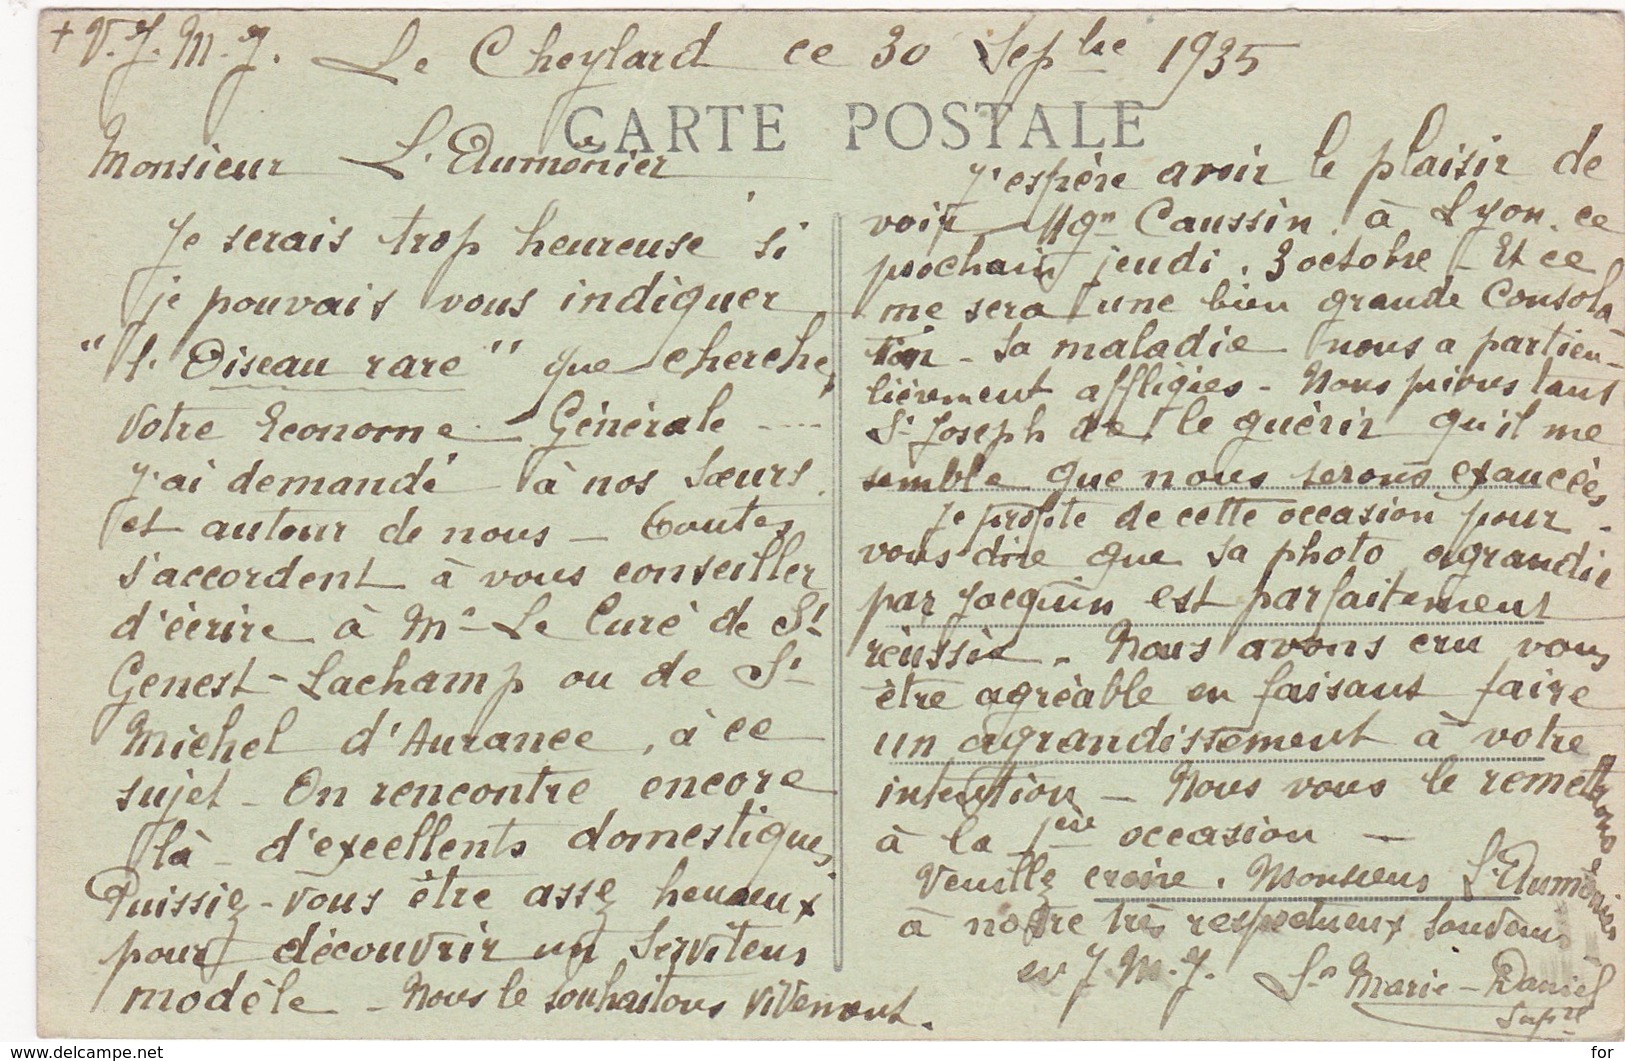 + V. J. M. J. Le Cheylard ce 30 Sepbre 1935
CARTE POSTALE
Monsieur L'Aumônier,
Je serais trop heureuse si
je pouvais vous indiquer
"l'Oiseau rare" que cherche,
votre Econome Générale ....
J'ai demandé à nos Sœurs
et autour de nous - Toutes
s'accordent à vous conseiller
d'écrire à Mr Le Curé de St
Genest-Lachamp ou de St
Michel d'Aurance, à ce
sujet - On rencontre encore
là - d'excellents domestiques,
Puissiez-vous être assez heureux
pour découvrir un Serviteur
modèle - Nous le souhaitons vivement.
J'espère avoir le plaisir de
voir Mgr Caussin à Lyon ce
prochain jeudi. 3 octobre - Et ce
me sera une bien grande Consola-
tion - Sa maladie nous a particu-
lièrement affligées - Nous prions tant
St Joseph de le guérir qu'il me
semble que nous serons exaucées
Je profite de cette occasion pour
vous dire que sa photo agrandie
par Jacquin est parfaitement
réussie. Nous avons cru vous
être agréable en faisant faire
un agrandissement à votre
intention - Nous vous le remettrons
à la 1ère occasion -
Veuillez croire, Monsieur L'Aumônier
à notre très respectueux souvenir
en J. M. J. Sr Marie-Daniel
Supre
www.delcampe.net
for